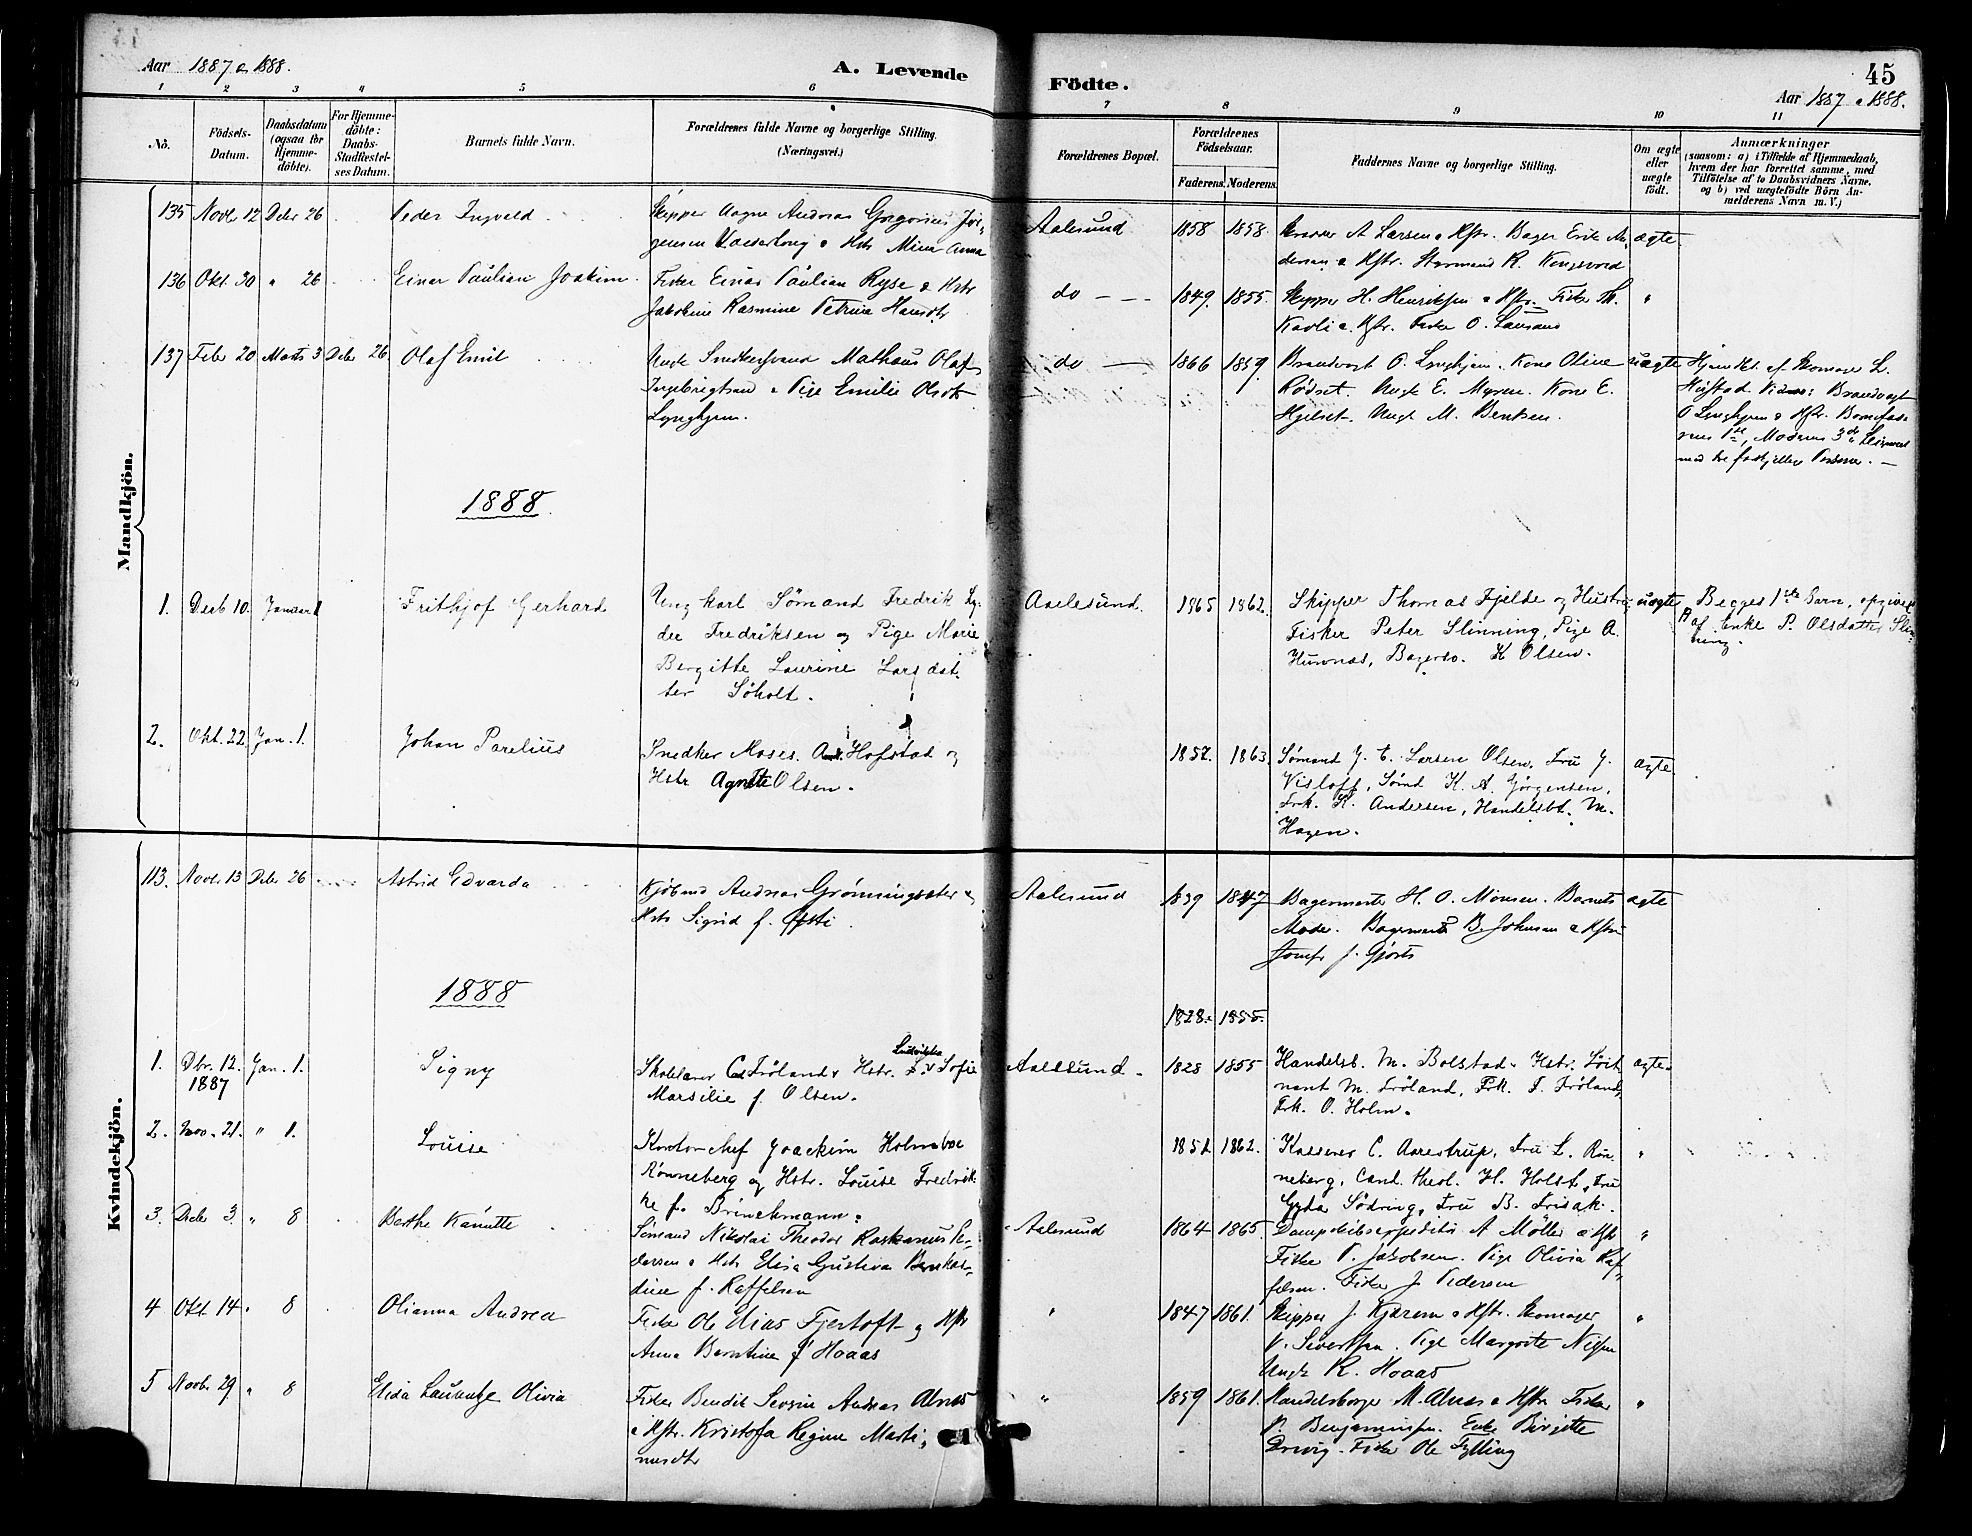 Aar 1887 & 1888.
A. Levende
Födte.
45
Aar 1887 & 1888.
1 2 3 4 5 6 7 8 9 10 11
No.
Födsels-Datum.
Daabsdatum (ogsaa for Hjemme-döbte).
For Hjemme-döbte: Daabs-Stadfæstel-ses Datum.
Barnets fulde Navn.
Forældrenes fulde Navne og borgerlige Stilling. (Næringsvei.)
Forældrenes Bopæl.
Forældrenes Födselsaar.
Faderens. Moderens.
Faddernes Navne og borgerlige Stilling.
Om ægte eller uægte födt.
Anmærkninger (saasom: a) i Tilfælde af Hjemmedaab, hvem der har forrettet samme, med Tilföielse af to Daabsvidners Navne, og b) ved uægtefödte Börn An-melderens Navn m. V.)
Mandkjön.
135 Novbr 12 Debr 26 Peder Ingvald
Skipper Aagne Andreas Gregorius Jör-
gensen & Hstr Mina Anna
Aalesund 1858 1858.
A Larsen & Hstr. Bager Erik An-
dersen & Hstr. Styrmand R.
ægte
136 Okt. 30 " 26 Einar Paulian Joakim
Fisker Einar Paulian Ryse & Hstr
Jakobine Rasmine Petrine Hansdtr
do 1849. 1855.
Skipper H. Henriksen & Hstr. Fisker Th.
Kavli & Hstr. Fisker O.
"
137 Febr 20 Marts 3 Debr 26. Olaf Emil
Ungk Snedkersvend Mathæus Olaf
Ingebrigtsen & Pige Emilie Olsdtr
Lynghjem.
do 1866 1859.
Brandvagt O. Lynghjem. Kone Oline
Rødset. Ungk E. Myren. Kone E.
Hjelset. Ungk M. Bentsen.
uægte
Hjemdbt. af Skomager L.
Hustad Vidner: Brandvagt
O Lynghjem & Hstr. Barnefade-
rens 1ste, Moderens 3de Leiermaal
med tre forskjellige Personer. —
1888.
1. Decb 10. Januar 1 Frithjof Gerhard
Ungkarl Sømand Fredrik Ly-
der Fredriksen og Pige Marie
Bergitte Laurine Larsdat-
ter Søholt.
Aalesund. 1865 1862.
Skipper Thomas Fjelde og Hustru
Fisker Peter Slinning, Pige A.
Husnæs, Bagersv. K Olsen.
uægte
Begges 1ste Barn, opgivet
af Enke P. Olsdatter Slin-
ning.
2. Okt. 22. Jan. 1. Johan Parelius
Snedker Moses And. Hofstad og
Hstr Agnette Olsen.
1852. 1863.
Sømand J. E. Larsen Olsen, Fru J.
Visloff, Sømd K. A. Jørgensen,
Frk. K. Andersen, Handelsbt. M.
Hagen.
ægte
Kvindekjön.
113. Novbr. 13 Debr 26 Astrid Edvarda
Kjøbmd Andreas Grønningsæter &
Hstr Sigrid f.
Aalesund 1839 1847
Bagermester H. O. Monsen. Barnets
Moder. Bagermester B. Johnsen & Hstru
Jomfr J. Gjørts
ægte
1888
1828. 1855.
1. Dbr. 12. 1887 Jan. 1. Signy
Skolelærer Frøland & Hstr. Ludvikka Sofie
Marsilie f. Olsen.
Aalesund 1828 1855
Handelsb. M. Bolstad & Hstr. Løit-
nant M. Frøland, Frk. J. Frøland,
Frk. O. Holm.
ægte
2. Nov. 21. " 1. Louise
Kontorchef Joackim Holmboe
Rønneberg og Hstr. Louise Fredrik-
ke f. Brinchmann.
1852 1862.
Kasserer C. Aarestrup, Fru L. Røn-
neberg, Cand. theol. H. Holst, Fru
Gyda Södring, Fru B. Frisak.
"
3. Debr 3. " 8 Berthe Kanutte
Sömand Nikolai Theodor Rasmus Pe-
dersen & Hstr Elisa Gustina Benkas-
dine f. Raffelsen
Aalesund 1864 1865.
Dampskibsexpeditr A Möller & Hstr
Fisker P. Jakobsen. Pige Olivia Raf-
felsen. Fisker J Pedersen
"
4 Okt. 14 " 8 Olianna Andrea
Fisker Ole Elias Fjertoft og Hstr
Anna Berntine f Hoaas
" 1847 1861.
Skipper J. Kjærem & Hstr. Skomager
P. Sivertsen. Pige Margrete Nilsen
Ungk R. Hoaas
"
5 Novbr. 29 " 8 Elida Laurentze Olivia
Fisker Bendik Severin Andreas Alnæs
& Hstr. Kristofa Regine Marti-
nusdtr
" 1859 1861.
Handelsborger M. Alnæs & Hstr Fisker
P. Benjaminsen. Enke Birgitte
Drevig. Fisker Ole Fylling
"